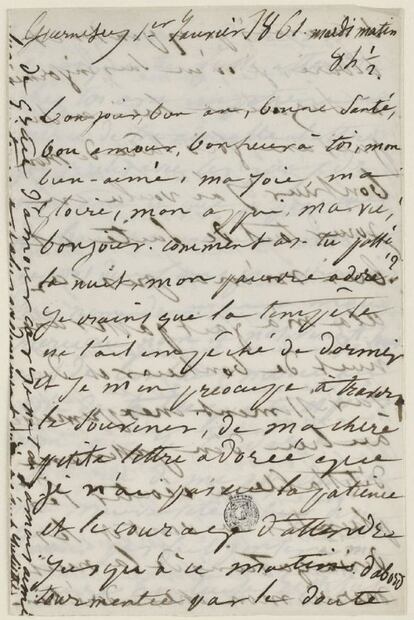 Guernesey 1er Janvier 1861. mardi matin
8h ½
bonjour, bon an, bonne santé,
bon amour, bonheur à toi, mon
bien-aimé, ma joie, ma
gloire, mon appui, ma vie,
bonjour. comment as-tu passé
la nuit mon pauvre adoré ?
je crains que la tempête
ne t'ait empêché de dormir
et je m'en préoccupe à travers
le souvenir, de ma chère
petite lettre adorée que
je n'ai pas eu la patience
et le courage d'attendre
jusqu'à ce matin d'abord
tourmentée par le doute